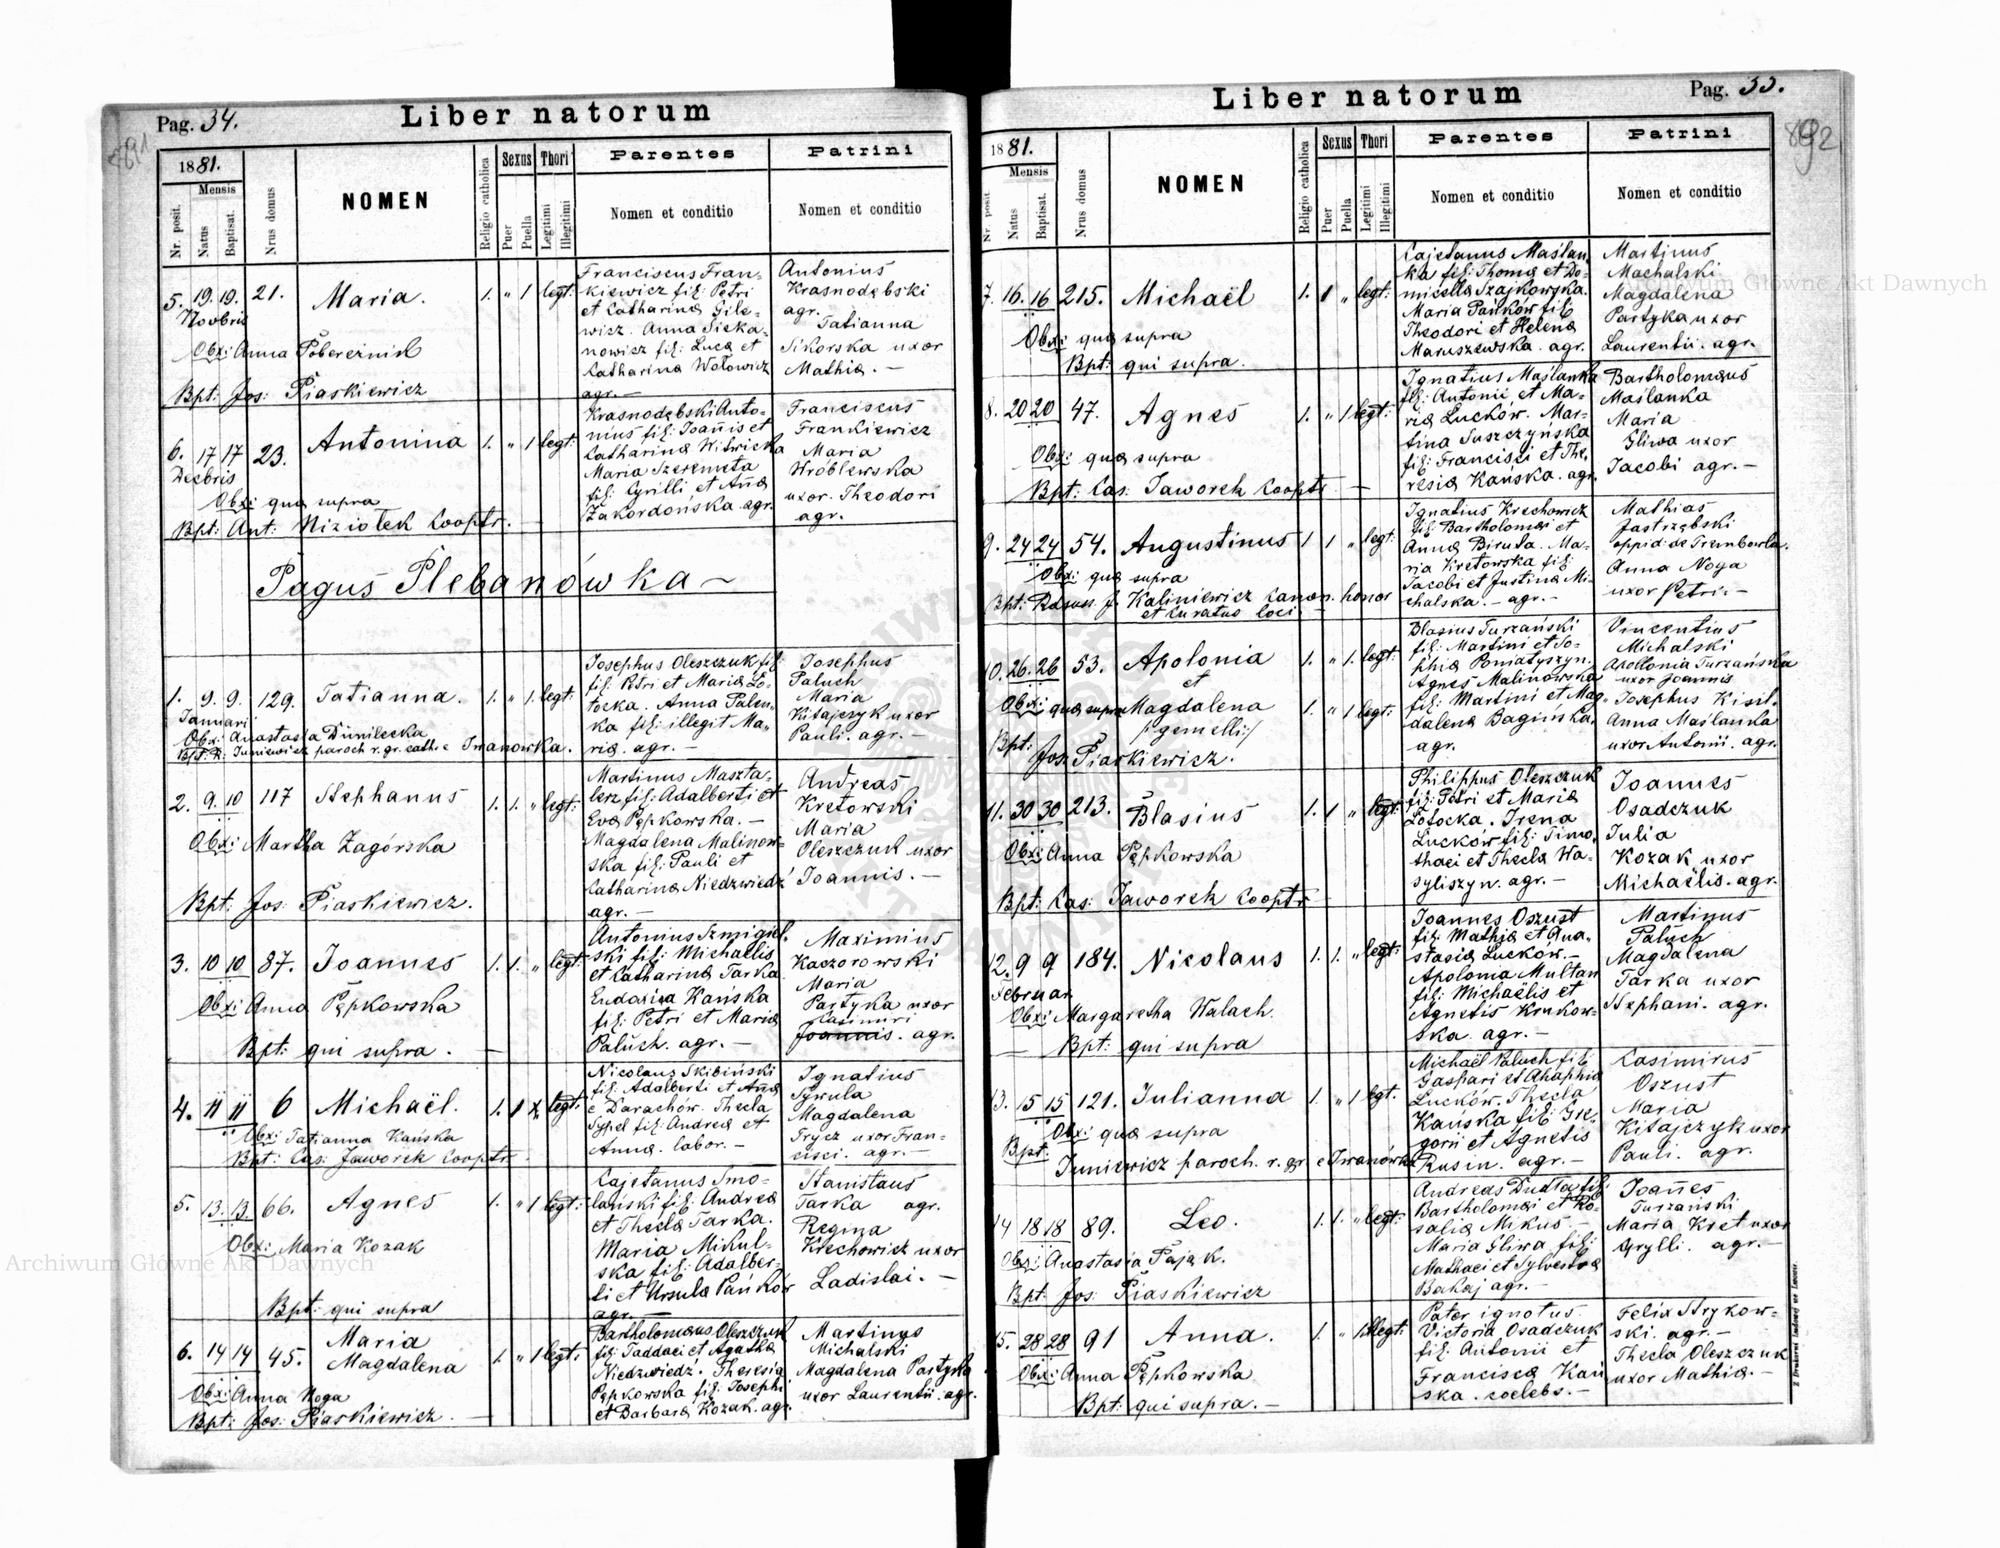 Pag. 34.
Liber natorum
1881.
Mensis
Nr. posit.
Natus
Baptisat.
Nrus domus
NOMEN
Religio catholica
Sexus
Puer
Puella
Thori
Legitimi
Illegitimi
Parentes
Nomen et conditio
Patrini
Nomen et conditio
5. 19. 19. 21. Maria. 1. " 1 legt:
Novbris
Obx: Anna Pobereżnik
Bpt: Jos: Piaskiewicz
Franciscus Fran-
kiewicz fil: Petri
et Catharina Gile-
wicz. Anna Sieka-
nowicz fil: Luca et
Catharina Wołowicz
agr.—
Antonius
Krasnodębski
agr.
Tatianna
Sikorska uxor
Mathia. —
6. 17 17 23. Antonina 1. " 1 legt:
Decbris
Obx: qua supra
Bpt: Ant: Niziołek Cooptr. —
Krasnodębski Anto-
nius fil: Joannis et
Catharina Witwicka
Maria Szeremeta
fil: Cyrilli et Anna
Zakordońska agr.
Franciscus
Frankiewicz
Maria
Wróblewska
uxor. Theodori
agr.
Pagus Plebanówka —
1. 9. 9. 129. Tatianna. 1. " 1. legt:
Januari
Obx: Anastasia Dunilecka
Bpt: R. Juniewicz paroch r. gr. cath. e Iwanowka.
Josephus Oleszczuk fil:
fil: Petri et Maria Ło-
tocka. Anna Palen-
ka fil: illegit Ma-
ria. agr. —
Josephus
Paluch
Maria
Kitajczyk uxor
Pauli. agr. —
2. 9. 10 117 Stephanus 1. 1. " legt:
Obx: Martha Zagórska
Bpt: Jos: Piaskiewicz.
Martinus Maszta-
lerz fil: Adalberti et
Eva Pępkowska. —
Magdalena Malinow-
ska fil: Pauli et
Catharina Niedzwiedź
agr. —
Andreas
Kretowski
Maria
Oleszczuk uxor
Joannis. —
3. 10 10 87. Joannes 1. 1. " legt:
Obx: Anna Pępkowska
Bpt: qui supra. —
Antonius Szmigiel-
ski fil: Michaelis
et Catharina Tarka
Eudoxia Kańska
fil: Petri et Maria
Paluch. agr. —
Maximius
Kaczorowski
Maria
Partyka uxor
Casimiri
Joannis. agr.
4. 11 11 6 Michaël. 1. 1 legt:
Obx: Tatianna Kańska
Bpt: Cas: Jaworek Cooptr
Nicolaus Skibiński
fil: Adalberti et Anna
e Darachów. Thecla
Sypel fil: Andrea et
Anna. labor. —
Ignatius
Tywula
Magdalena
Frycz uxor Fran-
cisci. agr. —
5. 13. 13. 66. Agnes 1. " 1 legt:
Obx: Maria Kozak
Bpt: qui supra
Cajetanus Smo-
lański fil: Andrea
et Thecla Tarka.
Maria Mikul-
ska fil: Adalber-
ti et Ursula Pańków
agr. —
Stanislaus
Tarka agr.
Regina
Krechowicz uxor
Ladislai. —
6. 14 14 45. Maria
Magdalena 1. " 1 legt:
Obx: Anna Noga
Bpt: Jos: Piaskiewicz. —
Bartholomaus Oleszczuk
fil: Taddaei et Agatha
Niedzwiedź. Theresia
Pępkowska fil: Josephi
et Barbara Kozak. agr.
Martinus
Michalski
Magdalena Partyka
uxor Laurentii. agr.
Pag. 35.
892
Liber natorum
1881.
Mensis
Nr. posit
Natus
Baptisat.
Nrus domus
NOMEN
Religio catholica
Sexus
Puer
Puella
Thori
Legitimi
Illegitimi
Parentes
Nomen et conditio
Patrini
Nomen et conditio
7. 16. 16 215. Michaël 1. 1 " legt:
Obx: qua supra
Bpt: qui supra.
Cajetanus Maślan-
ka fil: Thoma et Do-
micella Szajkowska.
Maria Pańków fil
Theodori et Helena
Maruszewska. agr.
Martinus
Machalski
Magdalena
Partyka uxor
Laurentii. agr.
8. 20 20 47. Agnes 1. " 1 legt:
Obx: qua supra
Bpt: Cas: Jaworek Cooptr —
Ignatius Maślanka
fil: Antonii et Ma-
ria Łucków. Mar-
tina Suszczyńska
fil: Francisci et The-
resia Kańska. agr.
Bartholomaus
Maślanka
Maria
Gliwa uxor
Jacobi agr. —
9. 24 24 54. Augustinus 1 1 " legt:
Obx: qua supra
Bpt: J. Kaliniewicz Canon. honor
et Curatus loci —
Ignatius Krechowicz
fil: Bartholomai et
Anna Biruta. Ma-
ria Kretowska fil:
Jacobi et Justina Mi-
chalska. — agr. —
Mathias
Jastrzębski
oppid: de Trembowla.
Anna Noga
uxor Petri. —
10. 26. 26 53. Apolonia 1. " 1. legt:
et
Obx: qua supra Magdalena 1. " 1 legt:
/:gemelli:/
Bpt: Jos: Piaskiewicz.
Blasius Turzański
fil: Martini et So-
phia Poniatyszyn.
Agnes Malinowska
fil: Martini et Mag-
dalena Bagińska
agr.
Vincentius
Michalski
Apollonia Turzańska
uxor Joannis
Josephus Kisil.
Anna Maślanka
uxor Antonii. agr.
11. 30 30 213. Blasius 1. 1 " legt:
Obx: Anna Pępkowska
Bpt: Cas: Jaworek Cooptr —
Philippus Oleszczuk
fil: Petri et Maria
Łotocka. Irena
Łucków fil: Timo-
thaei et Thecla Wa-
syliszyn. agr. —
Joannes
Osadczuk
Julia
Kozak uxor
Michaëlis. agr.
12. 9 9 184. Nicolaus 1. 1. " legt:
Februar
Obx: Margaretha Walach.
— Bpt: qui supra
Joannes Oszust
fil: Mathia et Ana-
stasia Łucków. —
Apolonia Multan
fil: Michaëlis et
Agnetis Krukow-
ska agr. —
Martinus
Paluch
Magdalena
Tarka uxor
Stephani. agr.
13. 15 15 121. Julianna 1. " 1 legt.
Obx: qua supra
Bpt: Juniewicz paroch. r. gr e Iwanówka
Michaël Paluch fil:
Gaspari et Ahaphia
Łucków. Thecla
Kańska fil: Gre-
gorii et Agnetis
Rusin. agr. —
Casimirus
Oszust
Maria
Kitajczyk uxor
Pauli. agr.
14 18 18 89. Leo. 1. 1. " legt:
Obx: Anastasia Pająk.
Bpt: Jos: Piaskiewicz
Andreas Dudła fil:
Bartholomai et Ro-
salia Mikus. —
Maria Gliwa fil:
Mathaei et Sylvestra
Bakaj agr. —
Joannes
Turzański
Maria Kret uxor
Cyrylli. agr. —
15. 28 28 91 Anna. 1. " 1 illegt:
Obx: Anna Pępkowska
Bpt: qui supra. —
Pater ignotus
Victoria Osadczuk
fil: Antonii et
Francisca Kań-
ska. coelebs. —
Felix Strykow-
ski. agr. —
Thecla Oleszczuk
uxor Mathia. —
Archiwum Główne Akt Dawnych
Archiwum Główne Akt Dawnych